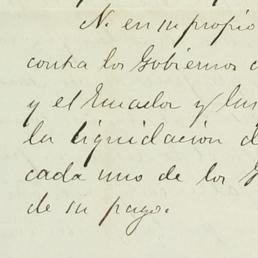 N. en su propio
contra los Gobiernos
y el Ecuador y
la liquidacion d
cada uno de los
de su pago.